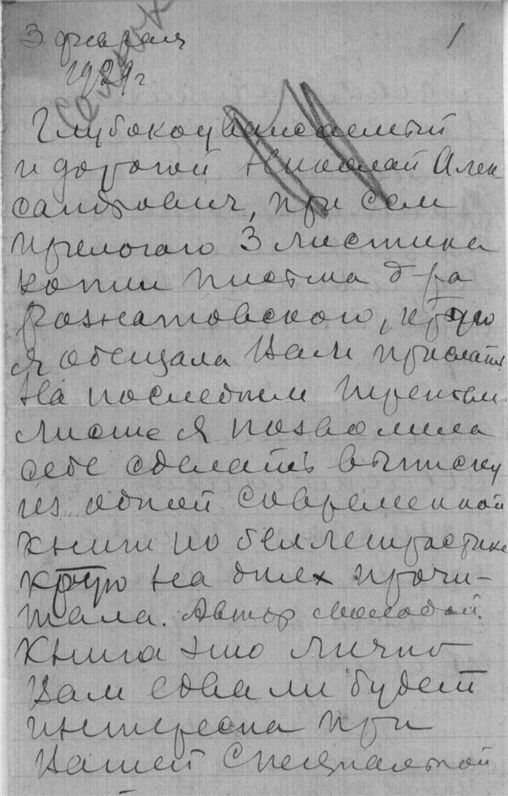 3 февраля
1929 г
1
Глубокоуважаемый
и дорогой Николай Алек
сандрович, при сем
прилагаю 3 листика
копии письма д-ра
я обещала Вам прислать
На последнем третьем
листе я позволила
себе сделать выписку
из одной современной
книги по беллетристике
кторую на днях прочи-
тала. Автор молодой.
Книга эта лично
Вам едва ли будет
интересна при
Вашей специальной